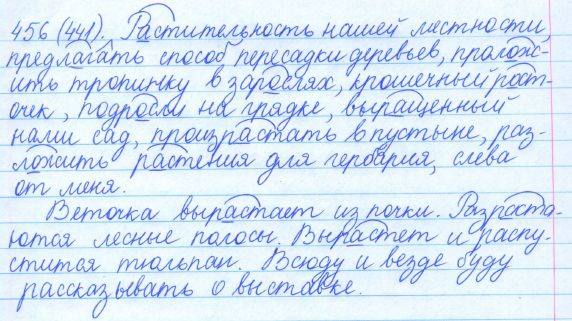 456 (441). Растительность нашей местности,
предлагать способ пересадки деревьев, пролож-
ить тропинку в зарослях, крошечный рост-
очек, подросли на грядке, выращенный
нами сад, произрастать в пустыне, раз-
ложить растения для гербария, слева
от меня.
Веточка вырастает из почки. Разраста-
ются лесные полосы. Вырастет и распу-
стится тюльпан. Всюду и везде буду
рассказывать о выставке.